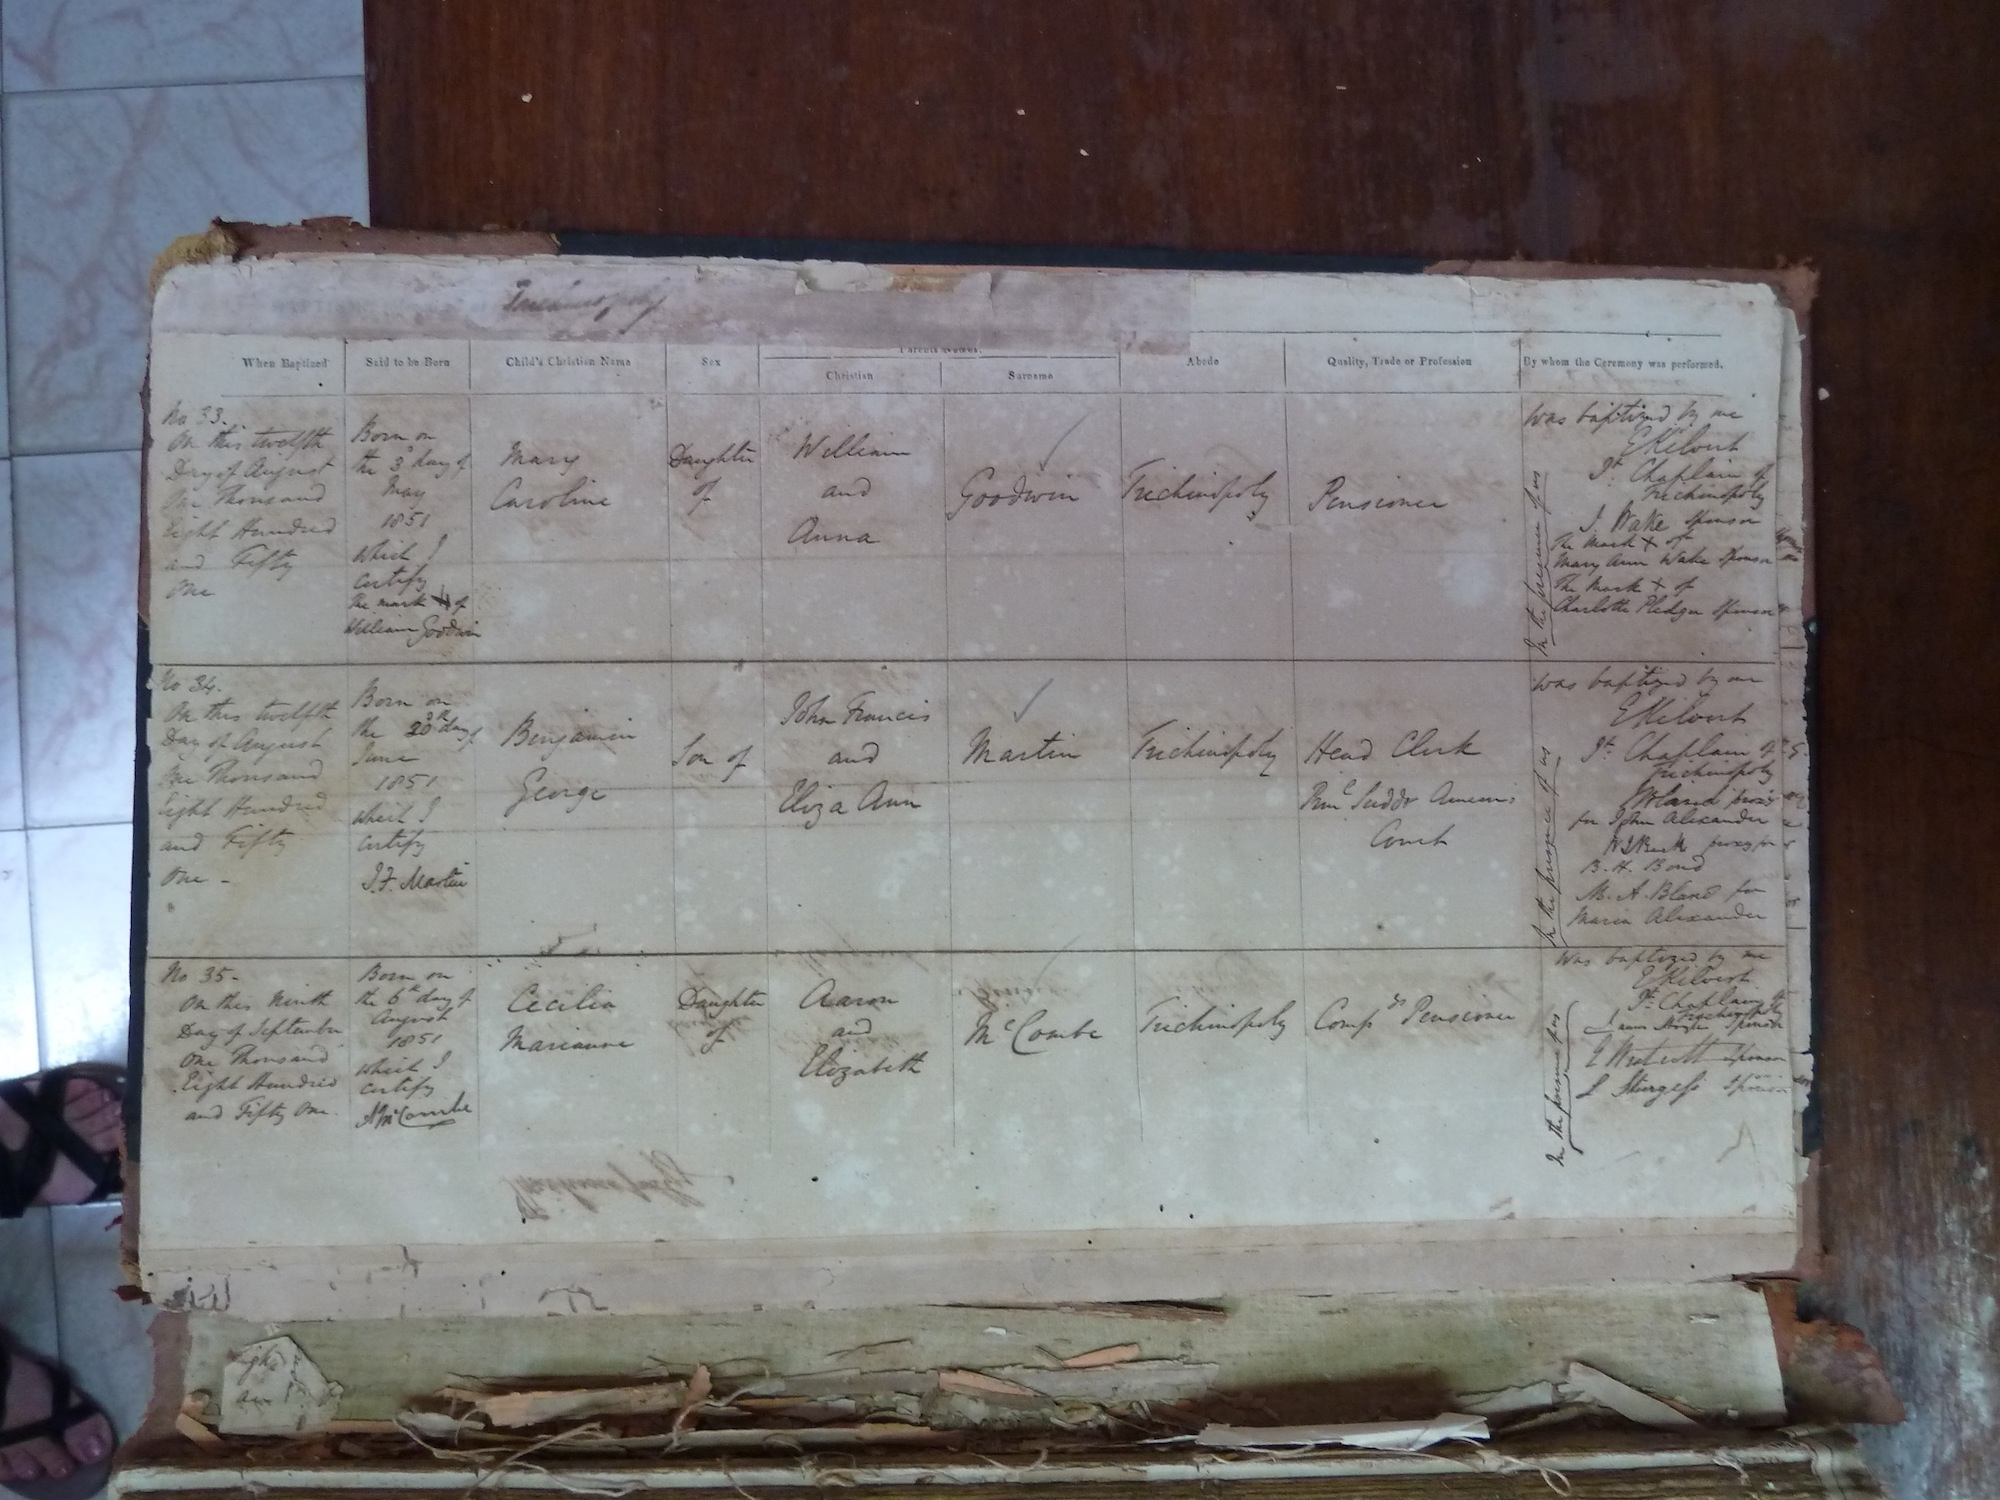 Trichinopoly
When Baptized
Said to be Born
Child's Christian Name
Sex
Parents Names.
Christian
Surname
Abode
Quality, Trade or Profession
By whom the Ceremony was performed.
No 33.
On this twelfth
Day of August
One Thousand
Eight Hundred
and Fifty
One
Born on
the 3d day of
May
1851
which I
certify
The mark of
William Goodwin
Mary
Caroline
Daughter
of
William
and
Anna
Goodwin
Trichinopoly
Pensioner
was baptized by me
E Kilvert
Jt. Chaplain of
Trichinopoly
In the presence of us
J. Wake Sponsor
The Mark X of
Mary Ann Wake Sponsor
The Mark X of
Charlotte Pledger Sponsor
No 34.
On this twelfth
Day of August
One Thousand
Eight Hundred
and Fifty
One -
Born on
the day of
June
1851
which I
certify
J. F. Martin
Benjamin
George
Son of
John Francis
and
Eliza Ann
Martin
Trichinopoly
Head Clerk
Sudder Ameens
Court
was baptized by me
E Kilvert
Jt. Chaplain of
Trichinopoly
In the presence of us
proxy
for John Alexander
proxy for
B. H. Bond
M. A. Bland for
Maria Alexander
No 35-
On this Ninth
Day of September
One Thousand
Eight Hundred
and Fifty One.
Born on
the 6th day of
August
1851
which I
certify
A McCombe
Cecilia
Marianne
Daughter
of
Aaron
and
Elizabeth
McCombe
Trichinopoly
Pensioner
was baptized by me
E Kilvert
Jt. Chaplain of
Trichinopoly
In the presence of us
Sponsor
Sponsor
L Sturgess Sponsor